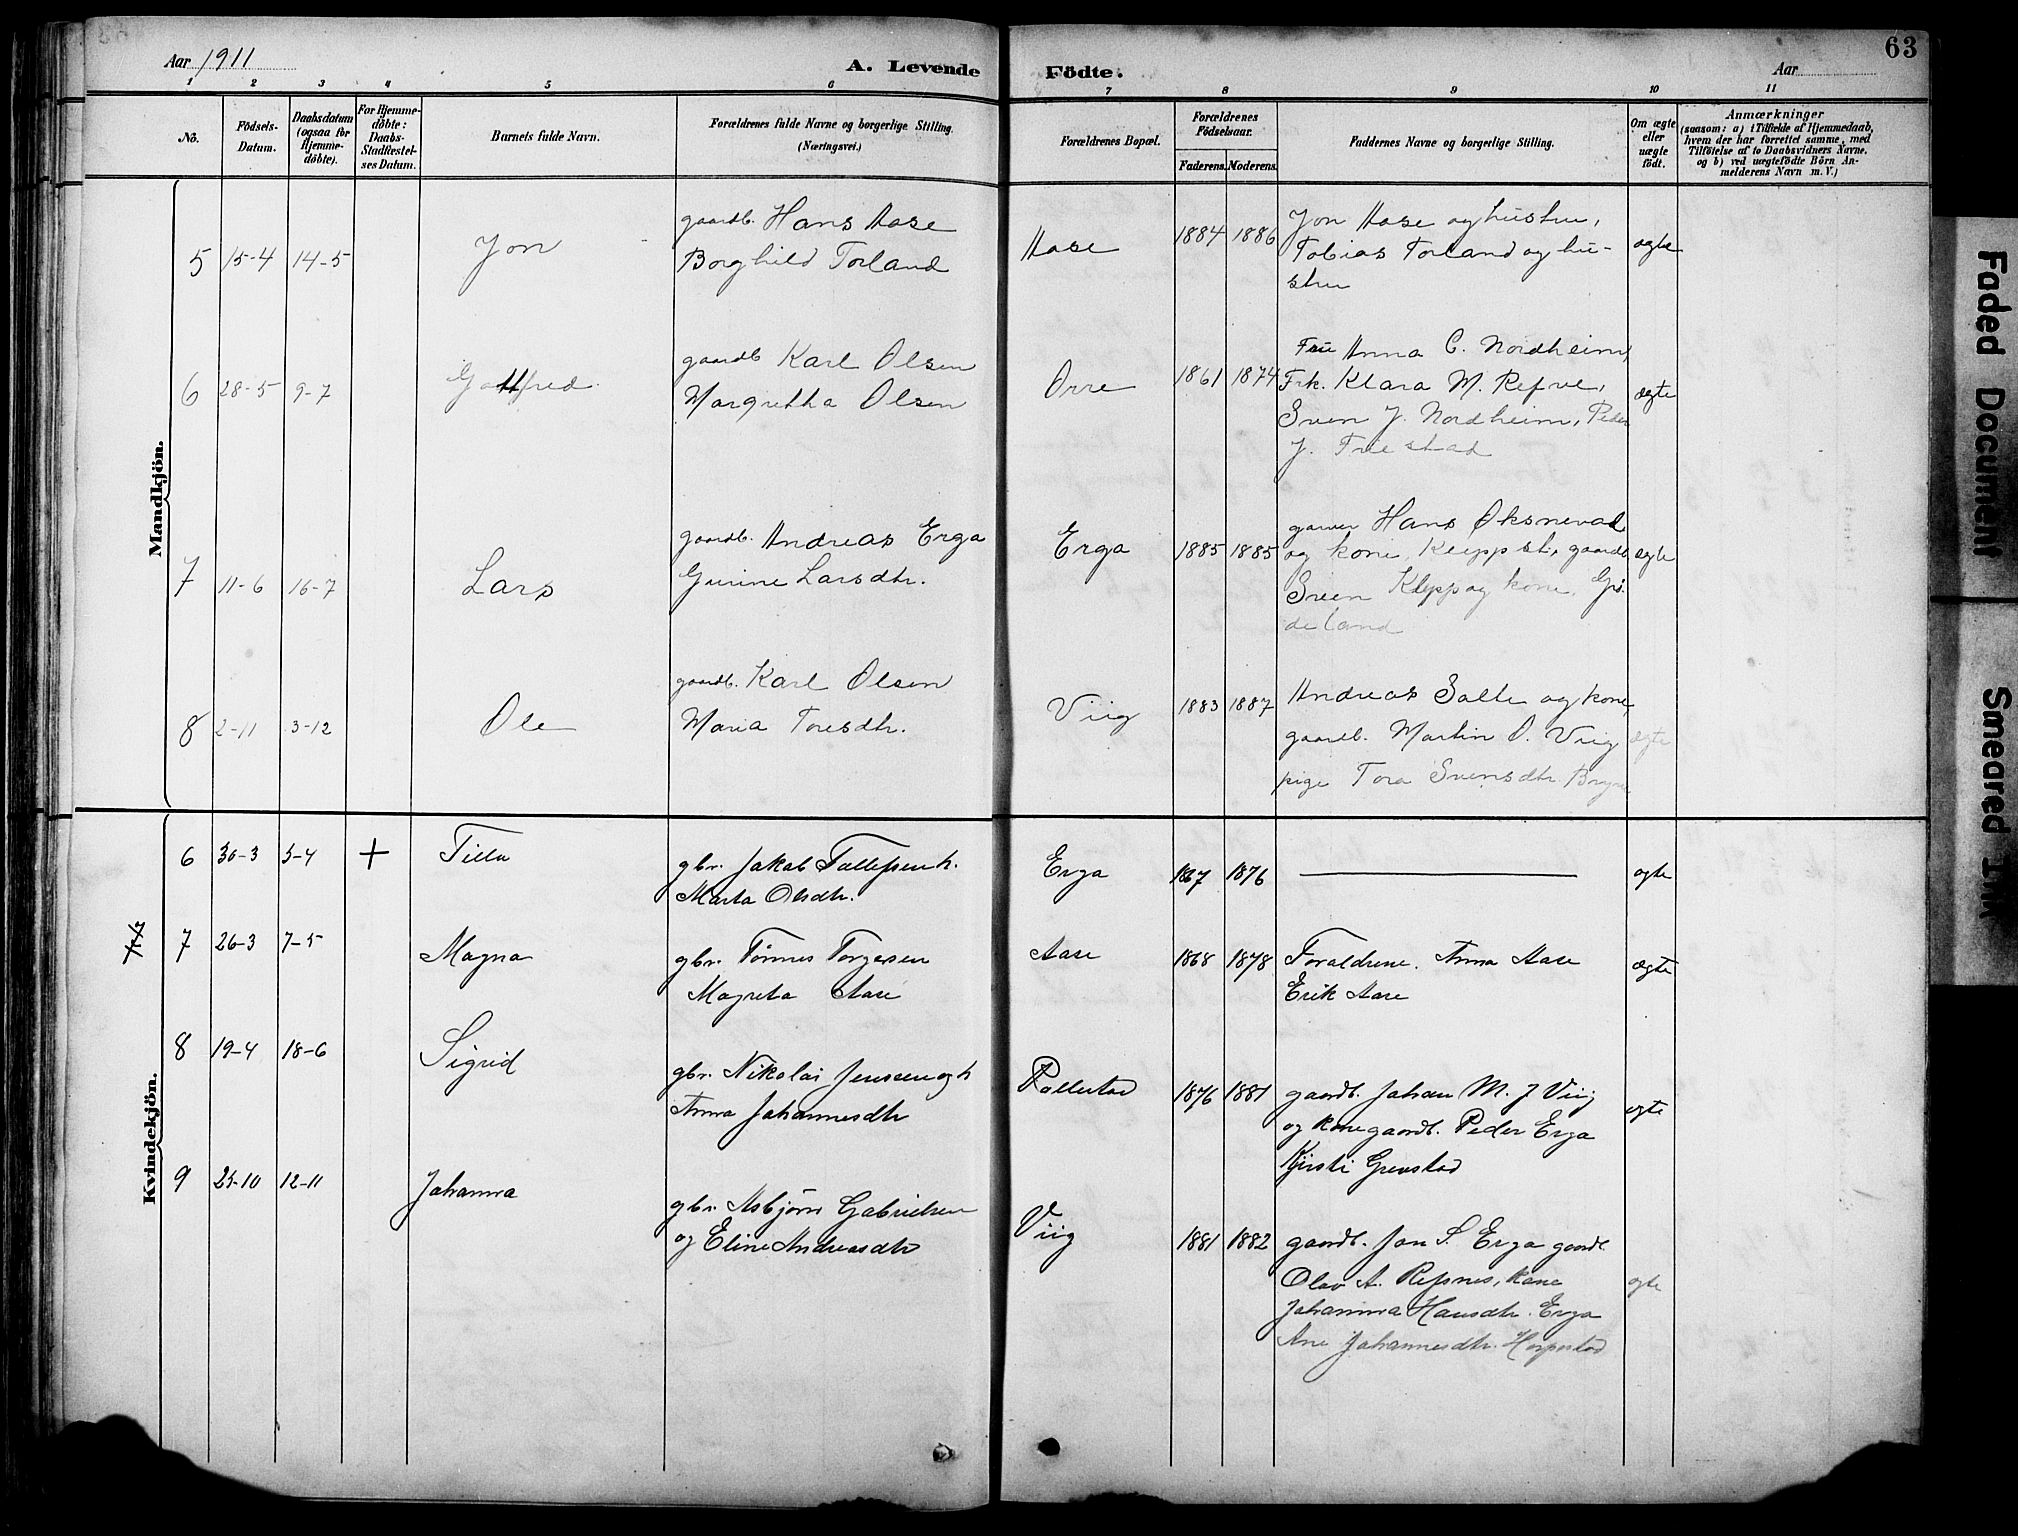 Aar 1911
A. Levende
Födte.
Aar
63
1 2 3 4 5 6 7 8 9 10 11
No.
Födsels-Datum.
Daabsdatum (ogsaa for Hjemme-döbte).
For Hjemme-döbte: Daabs-Stadfæstel-ses Datum.
Barnets fulde Navn.
Forældrenes fulde Navne og borgerlige Stilling.
(Næringsvei.)
Forældrenes Bopæl.
Forældrenes Födselsaar.
Faderens. Moderens.
Faddernes Navne og borgerlige Stilling.
Om ægte eller uægte födt.
Anmærkninger
(saasom: a) i Tilfælde af Hjemmedaab,
hvem der har forrettet samme, med
Tilföielse af to Daabsvidners Navne,
og b) ved uægtefödte Börn An-
melderens Navn m. V.)
Mandkjön.
5 15-4 14-5 Jon
gaardb. Hans Aase
Borghild Torland
Aase 1884 1886
Jon Aase og hustru,
Tobias Torland og hu-
stru
ægte
6 28-5 9-7 Gottfred
gaardb Karl Olsen
Margretha Olsen
Orre 1861 1874
Fru Anna C. Nordheim,
Frk. Klara M. Refve,
Sven J. Nordheim, Peder
J. Friestad
ægte
7 11-6 16-7 Lars
gaardb. Andreas Erga
Gurine Larsdtr.
Erga 1885 1885
garver Hans Øksnevad
og kone, Klepp st., gaardb
Sven Klepp og kone, Gru-
deland
ægte
8 2-11 3-12 Ole
gaardb. Karl Olsen
Maria Toresdtr.
Viig 1883 1887
Andreas Salte og kone,
gaardb. Martin O. Viig
pige Tora Svensdtr. Bryne
ægte
Kvindekjön.
6 30-3 5-4 + Tilla
gbr. Jakob Tollefsen h.
Marta Olsdtr.
Erga 1867 1876
ægte
7 26-3 7-5 Magna
gbr. Tönnes Torgersen
Magreta Aase
Aase 1868 1878
Forældrene. Anna Aase
Erik Aase
ægte
8 19-4 18-6 Sigrid
gbr. Nikolai Jenssen og h
Anna Johannesdtr
Pollestad 1876 1881
gaardb. Johan M. J Viig
og kone gaardb. Peder Erga
Kjirsti Grenstad
ægte
9 25-10 12-11 Johanna
gbr. Asbjörn Gabrielsen
og Eline Andreasdtr
Viig 1881 1882
gaardb. Jon S. Erga gaardb.
Olav A. Refsnes, kone
Johanna Hansdtr. Erga
Ane Johannesdtr. Horpestad
ægte
Faded Document
Smeared Ink